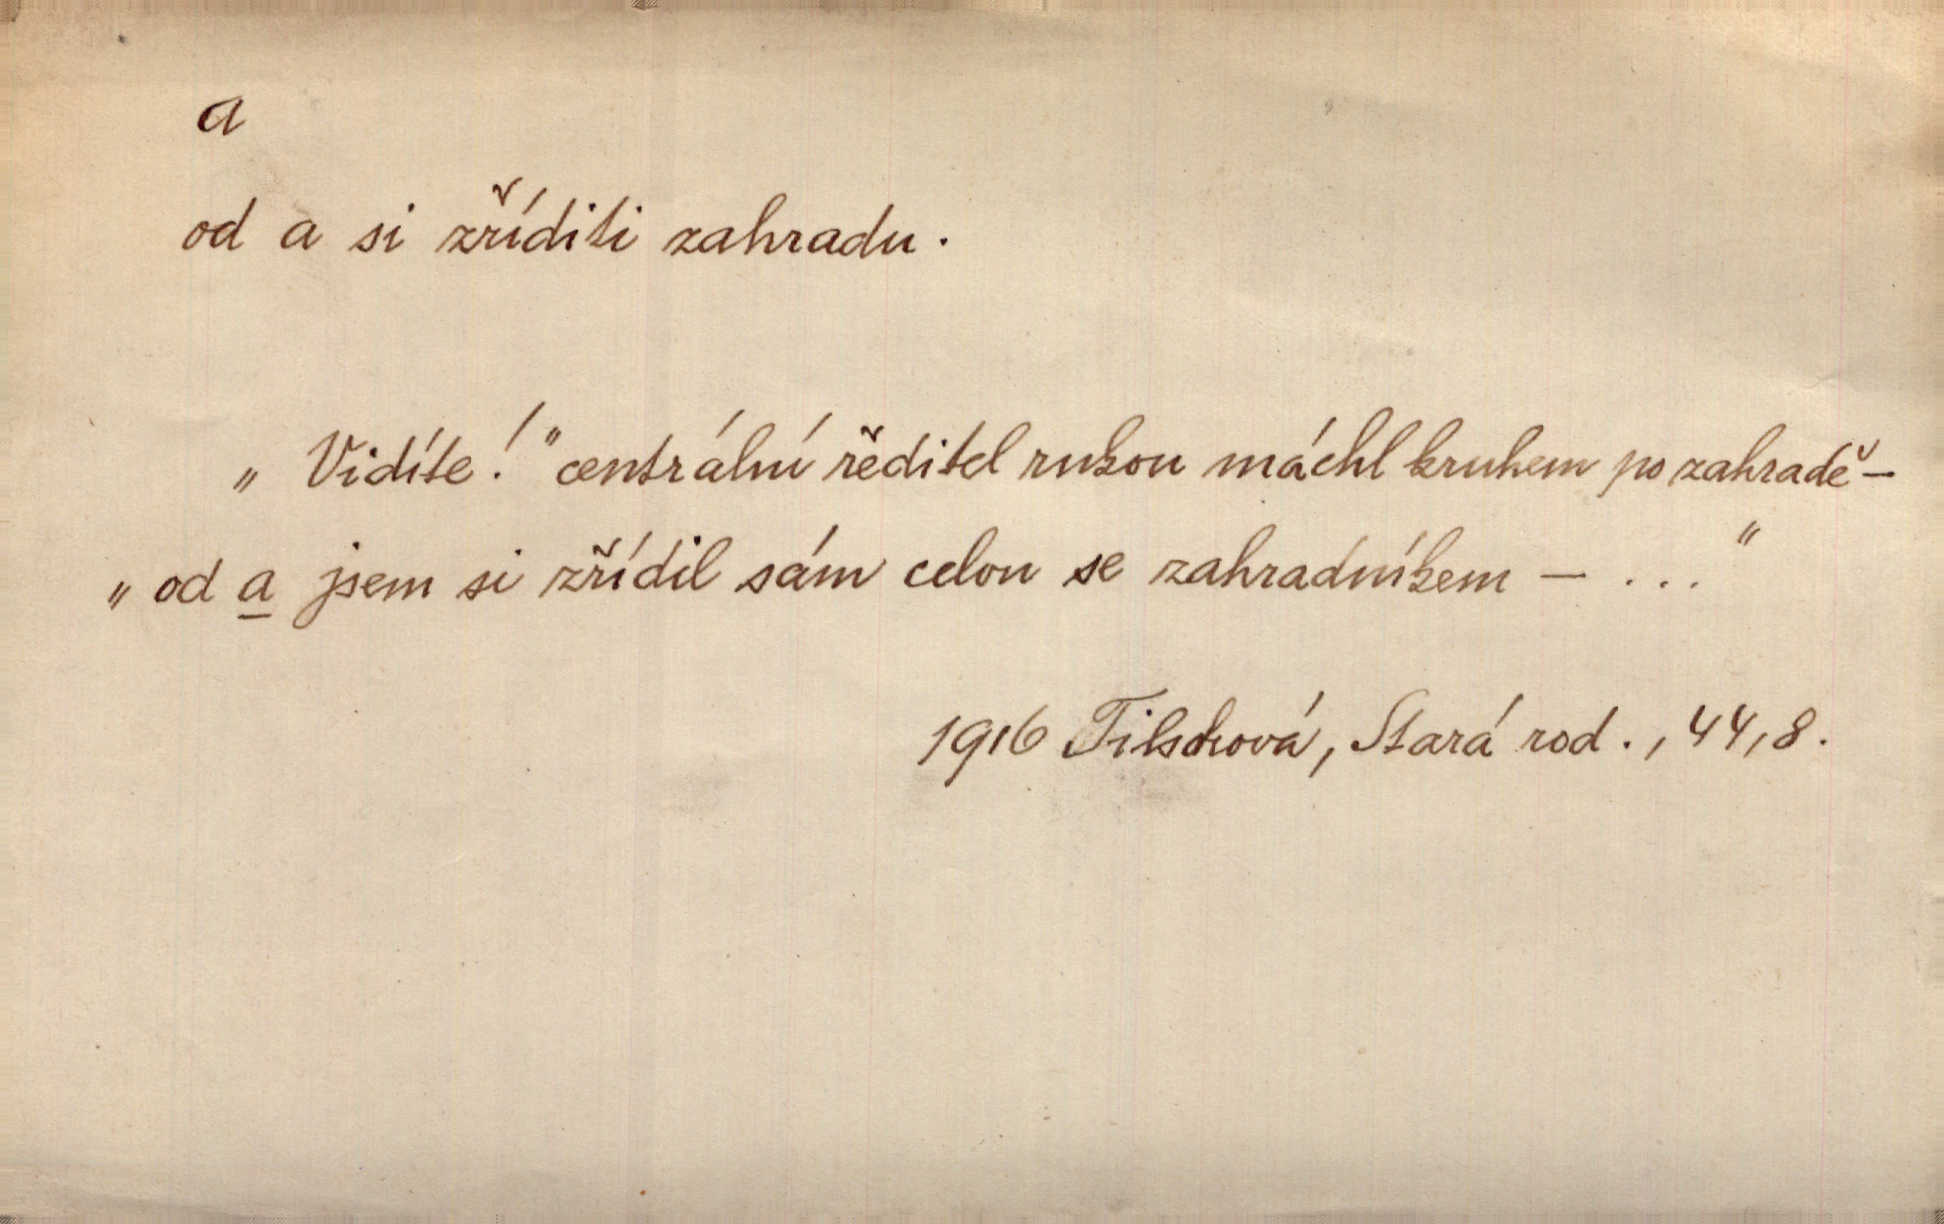 a
od a si zříditi zahradu.
„Vidíte!" centrální ředitel rukou máchl kruhem po zahradě –
„od a jsem si zřídil sám celou se zahradníkem – ..."
1916 Tilschová, Stará rod., 44,8.